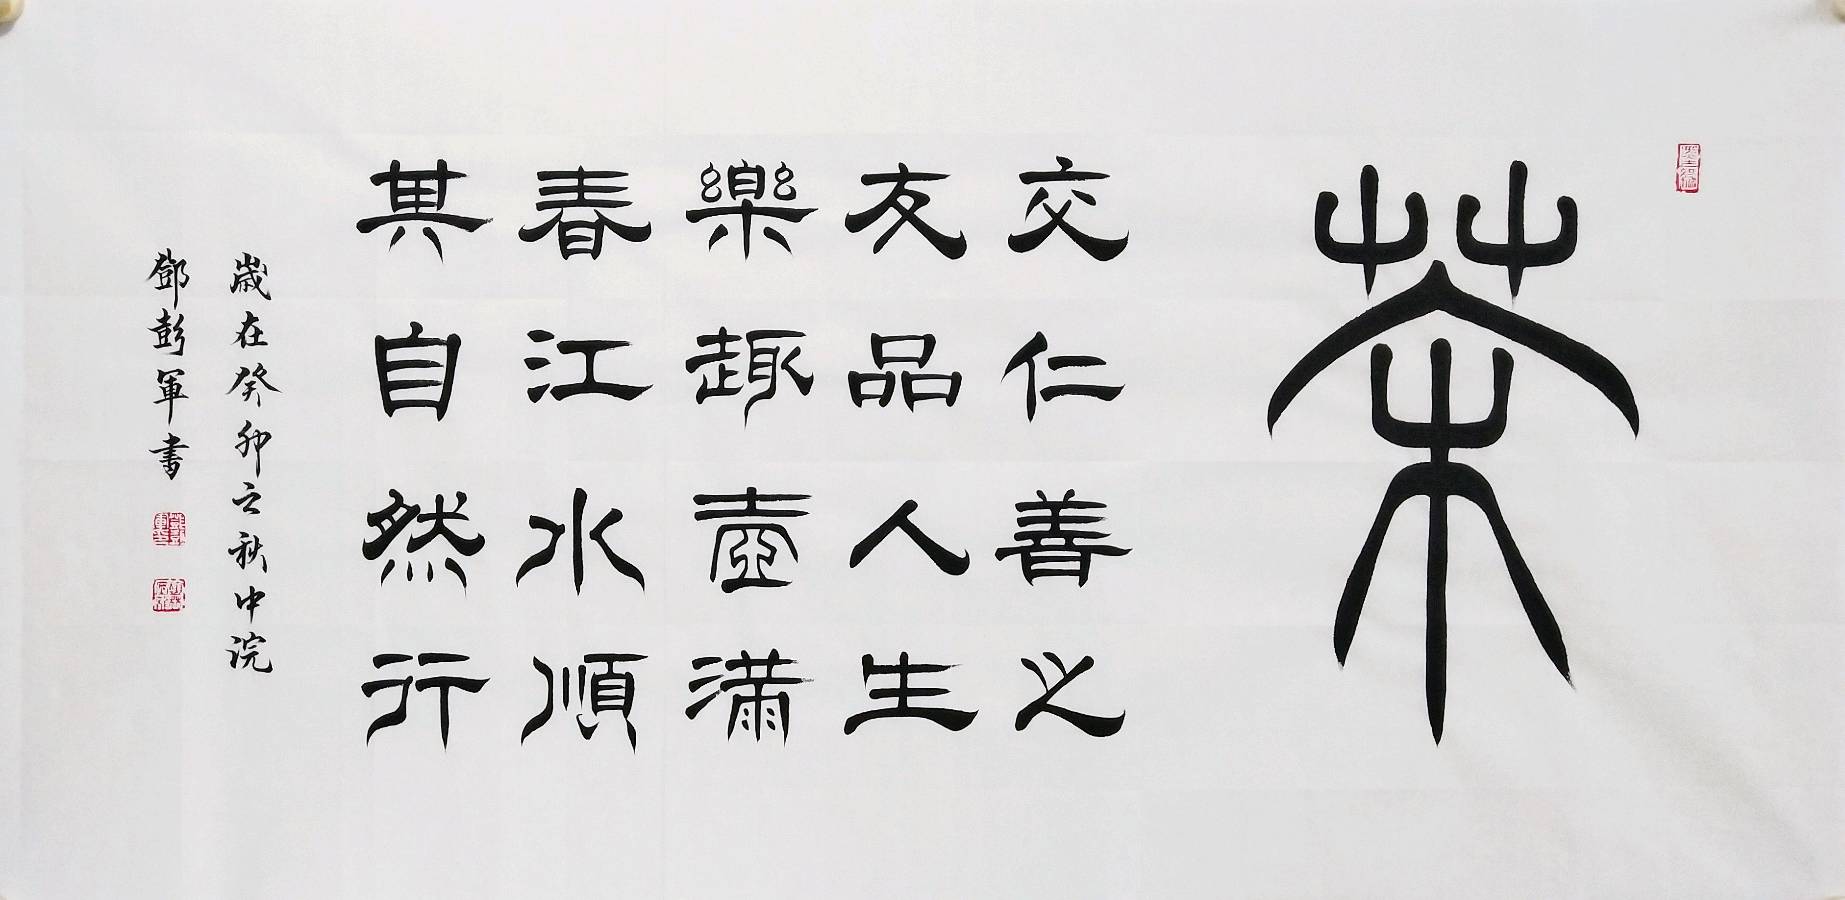 茶
交仁善之
友品人生
樂趣壺滿
春江水順
其自然行
歲在癸卯之秋中浣
鄧彭軍書